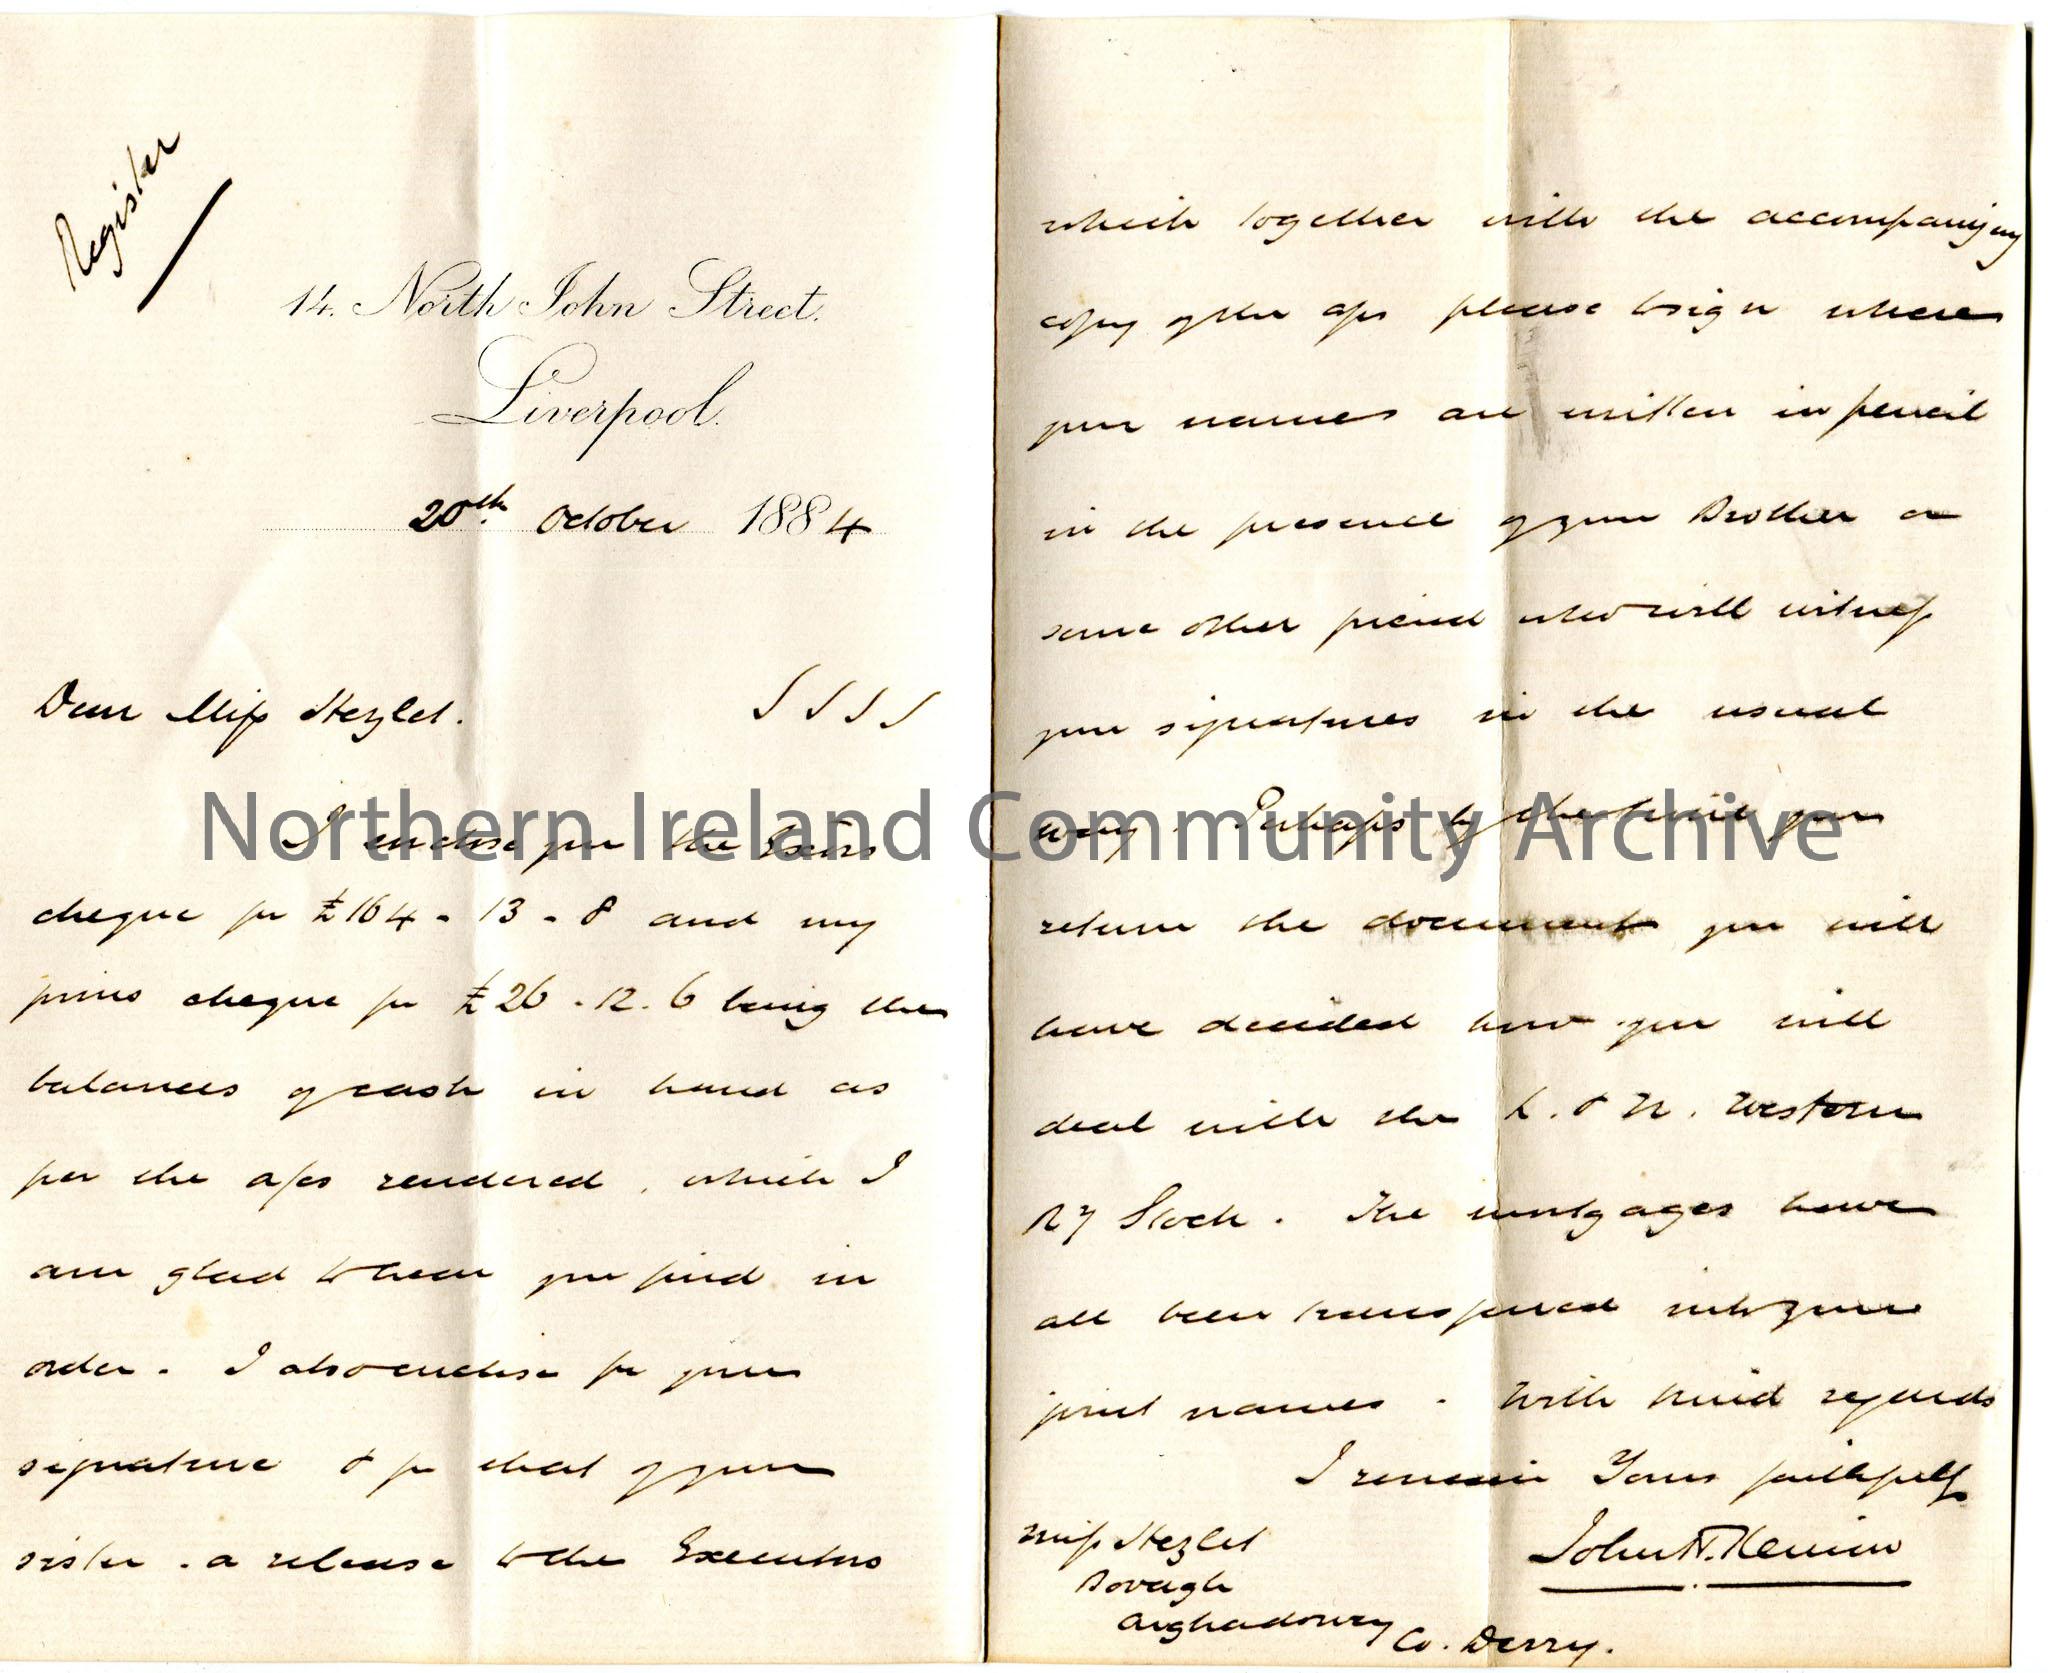 Register
14. North John Street.
Liverpool.
20th. October 1884
Dear Miss Hezlet.
I enclose you the Exors
cheque for £164 - 13 - 8 and my
firms cheque for £26 - 12. 6 being the
balances of cash in hand as
per the a/cs rendered, which I
am glad to hear you find in
order. I also enclose for your
signature & for that of your
sister. a release to the Executors
which together with the accompanying
copy of the a/cs please to sign where
your names are written in pencil
in the presence of your Brother or
some other friend who will witness
your signatures in the usual
way. Perhaps by the time you
return the document you will
have decided how you will
deal with the L. & N. Western
Ry Stock. The mortgages have
all been transferred into your
joint names. With kind regards
I remain Yours faithfully
John
Miss Hezlet
Bovagh
Aughadowey
Co. Derry.
Northern Ireland Community Archive